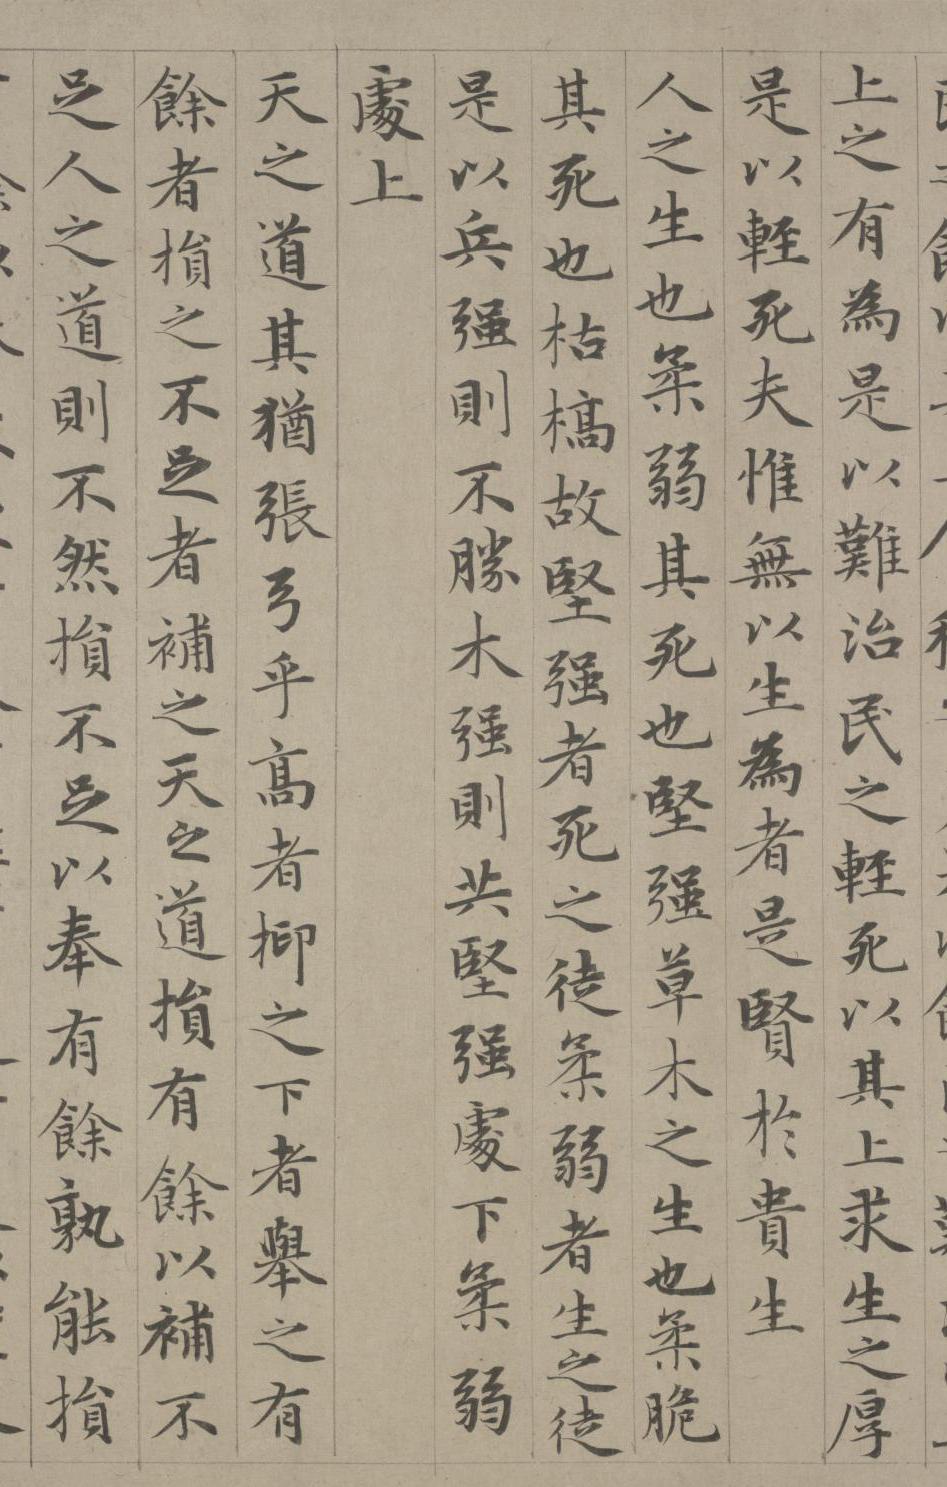 上之有為是以難治民之輕死以其上求生之厚
是以輕死夫惟無以生為者是賢於貴生
人之生也柔弱其死也堅强草木之生也柔脆
其死也枯槁故堅强者死之徒柔弱者生之徒
是以兵强則不勝木强則共堅强處下柔弱
處上
天之道其猶張弓乎高者抑之下者舉之有
餘者損之不足者補之天之道損有餘以補不
足人之道則不然損不足以奉有餘孰能損